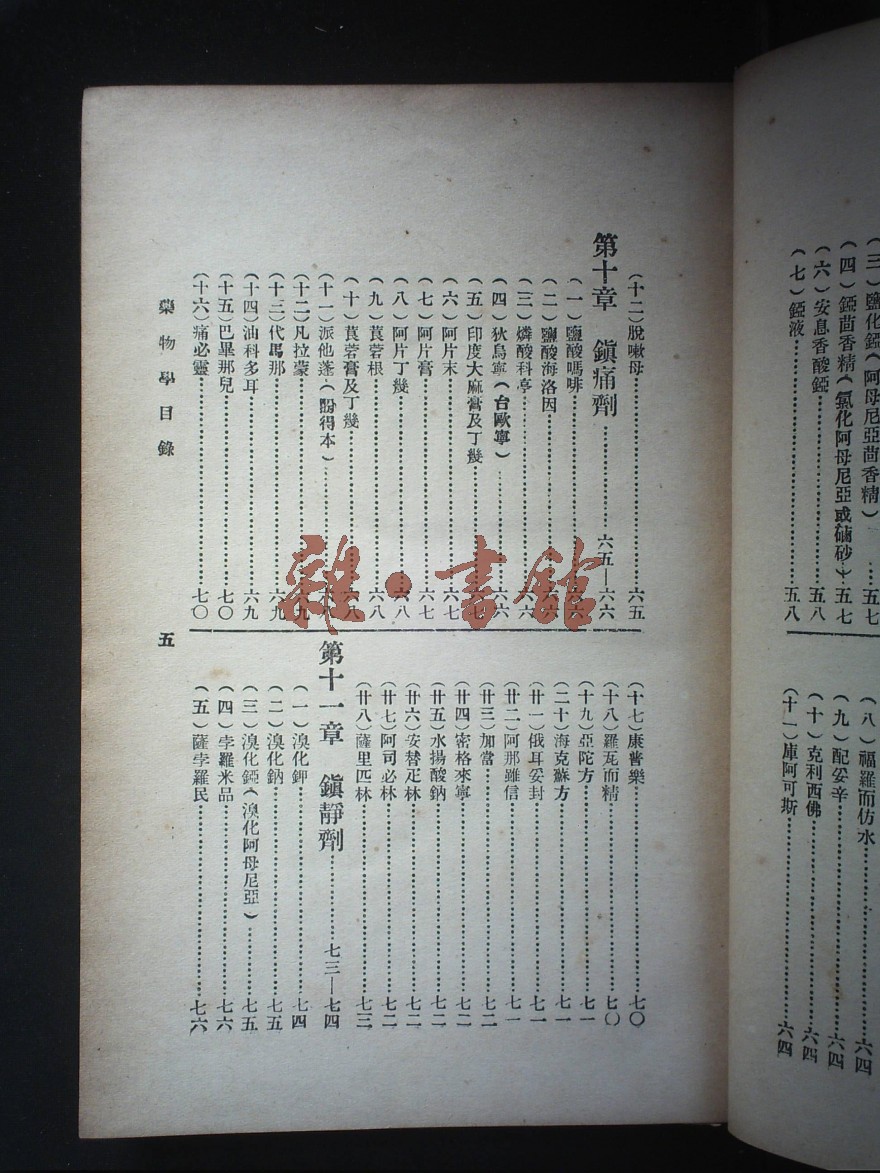 (三)鹽化錏(阿母尼亞茴香精)……五七
(四)錏茴香精(氯化阿母尼亞或磠砂)五七
(六)安息香酸錏……五八
(七)錏液……五八
(八)福羅而仿水……六四
(九)配妥辛……六四
(十)克利西佛……六四
(十一)庫阿可斯……六四
(十二)脫嗽母……六五
第十章 鎭痛劑……六五—六六
(一)鹽酸嗎啡……六六
(二)鹽酸海洛因……六六
(三)燐酸科亭……六六
(四)狄鳥寧(台歐寧)……六六
(五)印度大麻膏及丁幾……六七
(六)阿片末……六七
(七)阿片膏……六七
(八)阿片丁幾……六八
(九)莨菪根……六八
(十)莨菪膏及丁幾……六八
(十一)派他蓬(盼得本)……六八
(十二)凡拉蒙……六九
(十三)代馬那……六九
(十四)油科多耳……六九
(十五)巴畢那兒……七〇
(十六)痛必靈……七〇
(十七)康普樂……七〇
(十八)羅瓦而精……七〇
(十九)亞陀方……七一
(二十)海克蘇方……七一
(廿一)俄耳妥封……七一
(廿二)阿那雖信……七一
(廿三)加當……七二
(廿四)密格來寧……七二
(廿五)水揚酸鈉……七二
(廿六)安替疋林……七二
(廿七)阿司必林……七二
(廿八)薩里匹林……七三
第十一章 鎭靜劑……七三—七四
(一)溴化鉀……七四
(二)溴化鈉……七五
(三)溴化錏(溴化阿母尼亞)……七五
(四)孛羅米品……七六
(五)薩孛羅民……七六
藥物學目錄 五
雜·書館